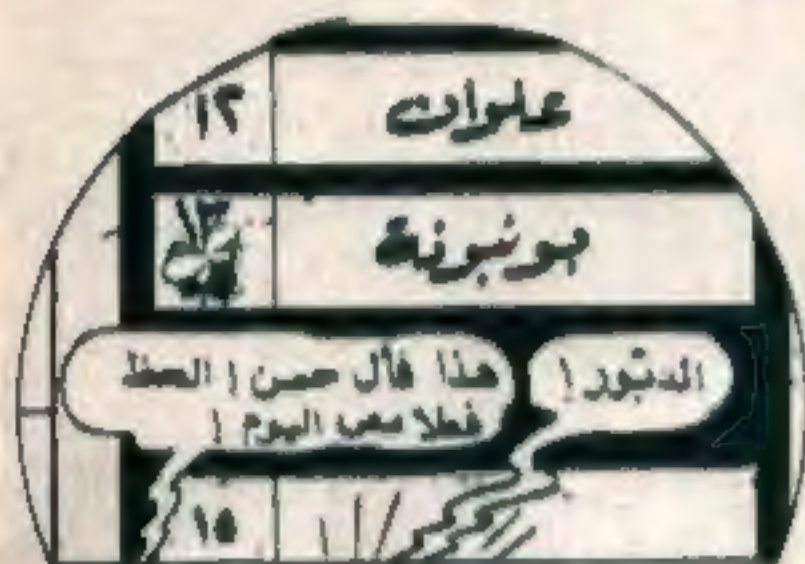 علوان ١٢
بونبونة ١٣
الدبور !
هذا فأل حسن ! الحظ
فعلا معى اليوم !
١٥